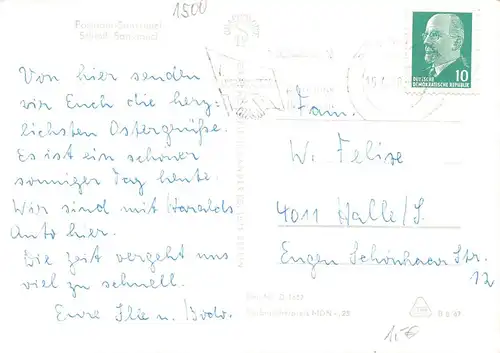 1500
Potsdam-Sanssouci
Schloß Sanssouci
Von hier senden
wir Euch die herz-
lichsten Ostergrüße.
Es ist ein schöner
sonniger Tag heute.
Wir sind mit Haralds
Auto hier.
Die Zeit vergeht uns
viel zu schnell.
Eure Ilse u. Bodo.
10
DEUTSCHE
DEMOKRATISCHE REPUBLIK
Fam.
W. Felize
4011 Halle/S.
Eugen Schönhaar Str.
12